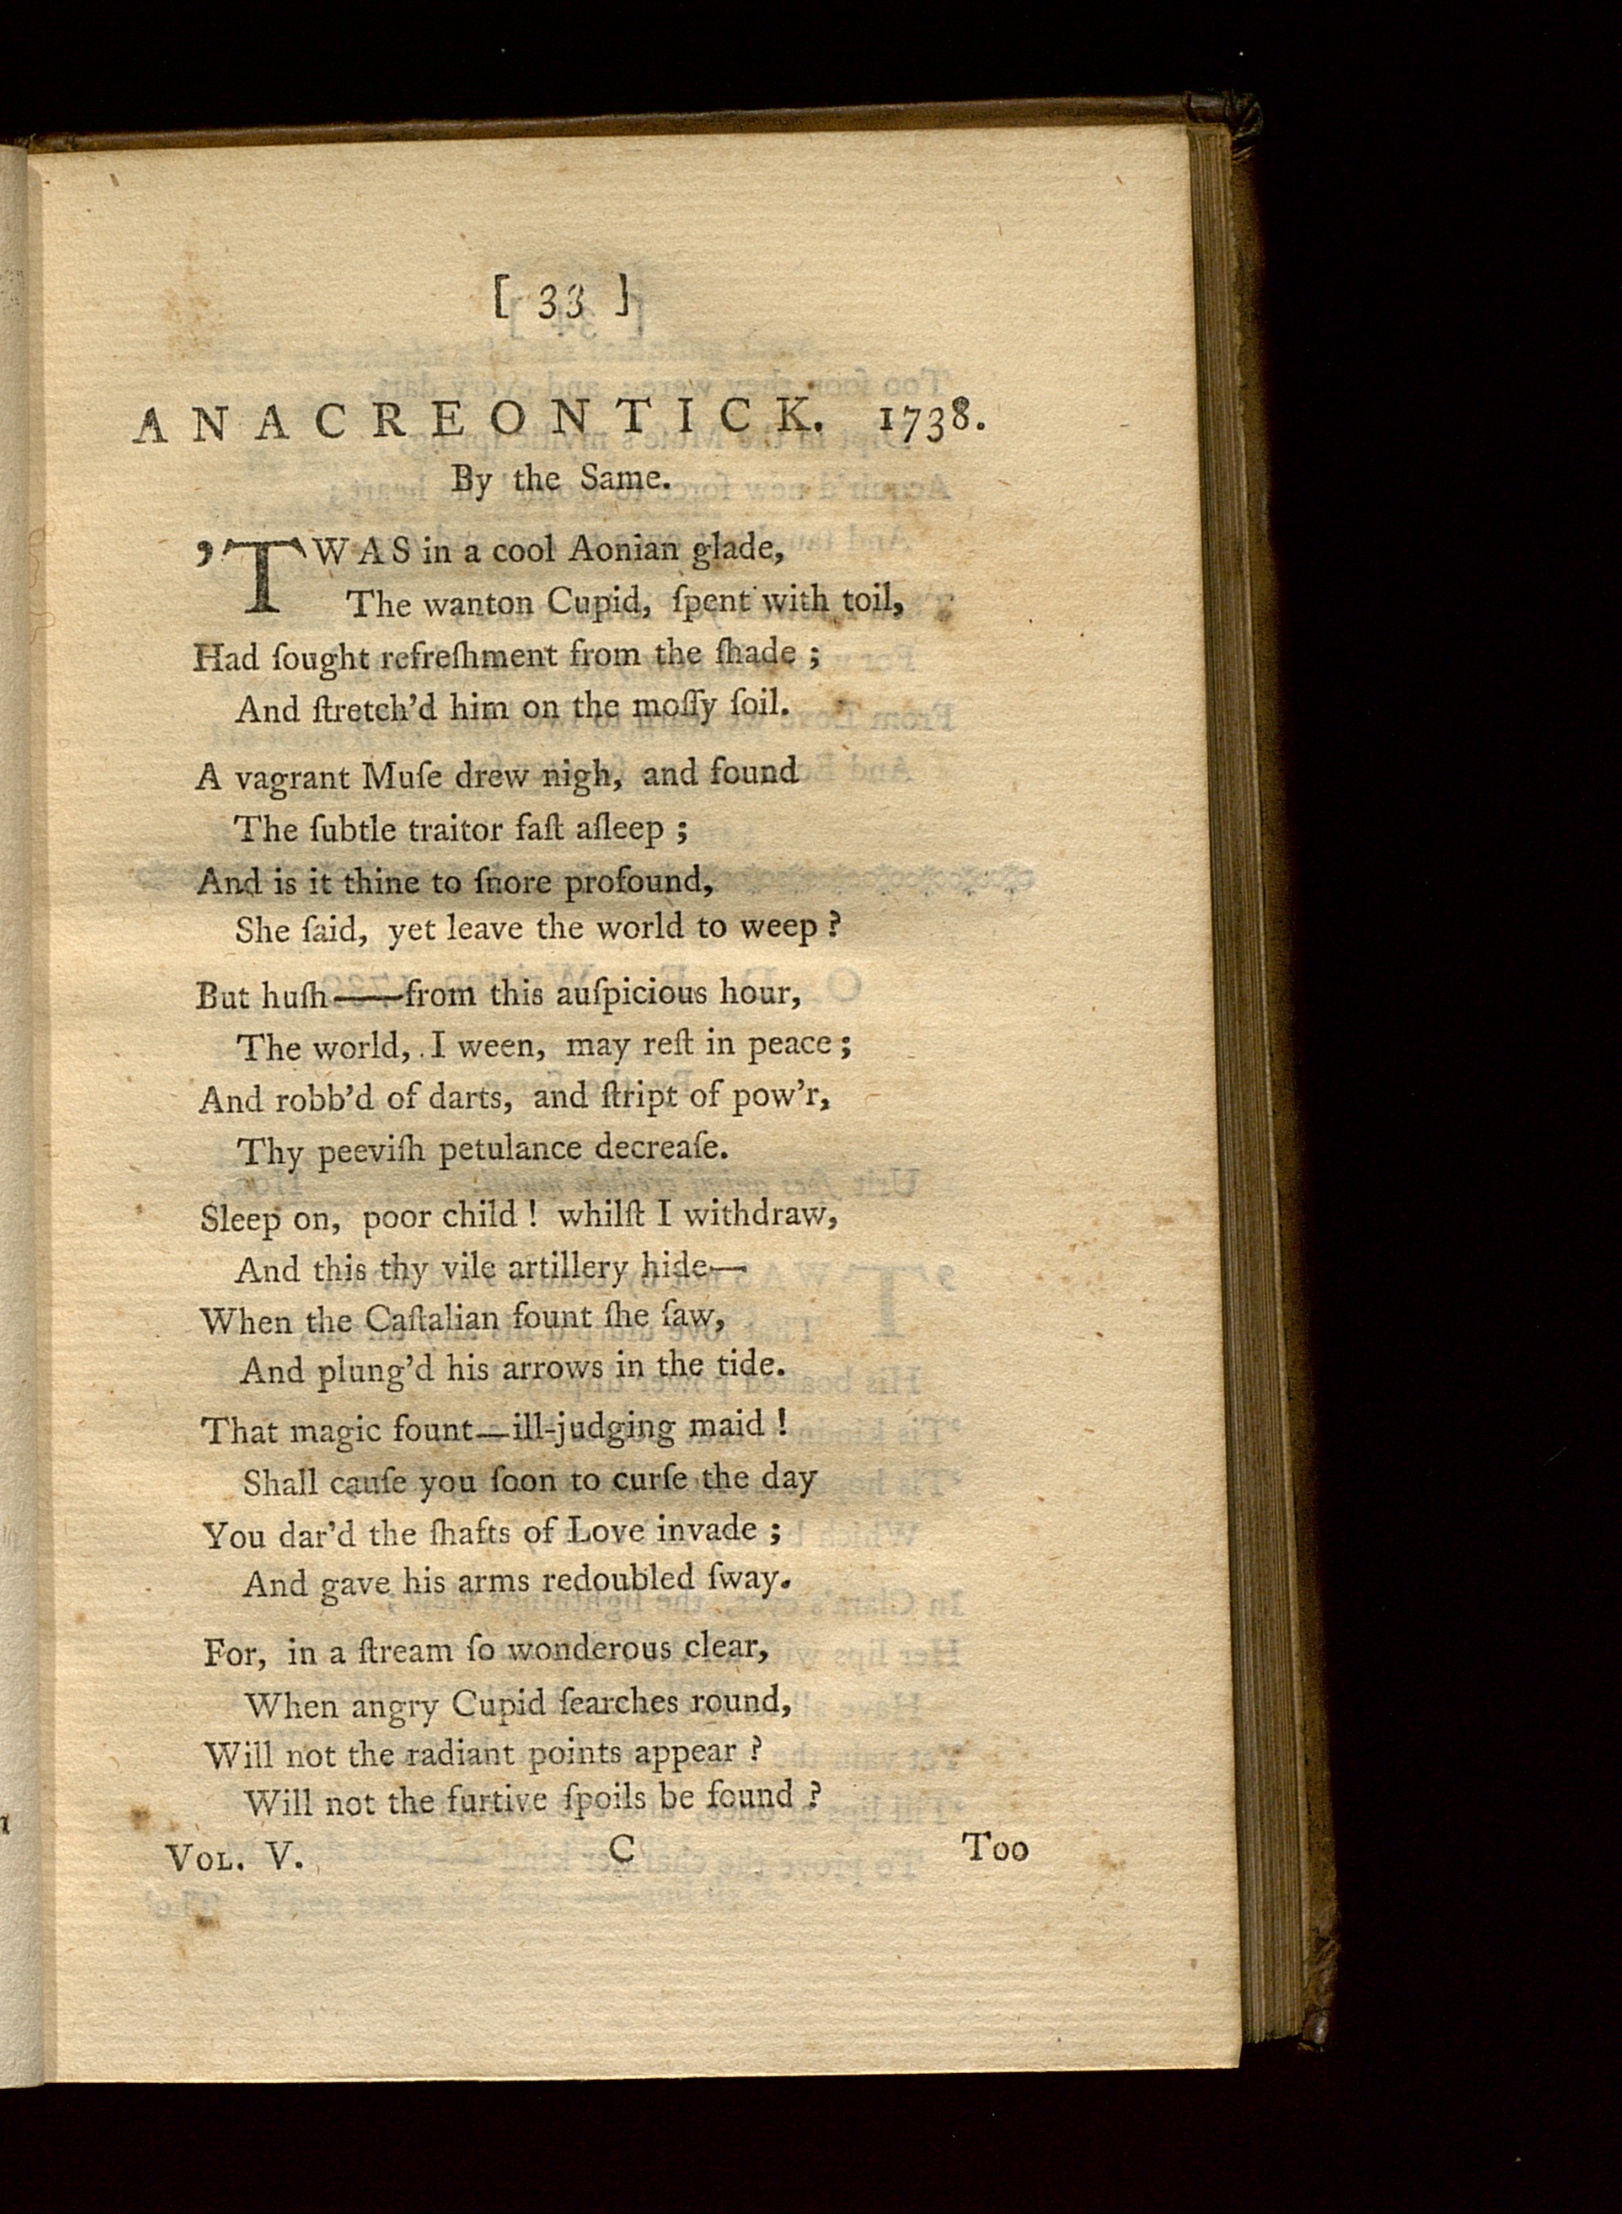 [ 33 ]
ANACREONTICK. 1738.
By the Same.
’TWAS in a cool Aonian glade,
The wanton Cupid, ſpent with toil,
Had ſought refreſhment from the ſhade ;
And ſtretch’d him on the moſſy ſoil.
A vagrant Muſe drew nigh, and found
The ſubtle traitor faſt aſleep ;
And is it thine to ſnore profound,
She ſaid, yet leave the world to weep ?
But huſh——from this auſpicious hour,
The world, I ween, may reſt in peace ;
And robb’d of darts, and ſtript of pow’r,
Thy peeviſh petulance decreaſe.
Sleep on, poor child ! whilſt I withdraw,
And this thy vile artillery hide—
When the Caſtalian fount ſhe ſaw,
And plung’d his arrows in the tide.
That magic fount—ill-judging maid !
Shall cauſe you ſoon to curſe the day
You dar’d the ſhafts of Love invade ;
And gave his arms redoubled ſway.
For, in a ſtream ſo wonderous clear,
When angry Cupid ſearches round,
Will not the radiant points appear ?
Will not the furtive ſpoils be found ?
VOL. V. C Too